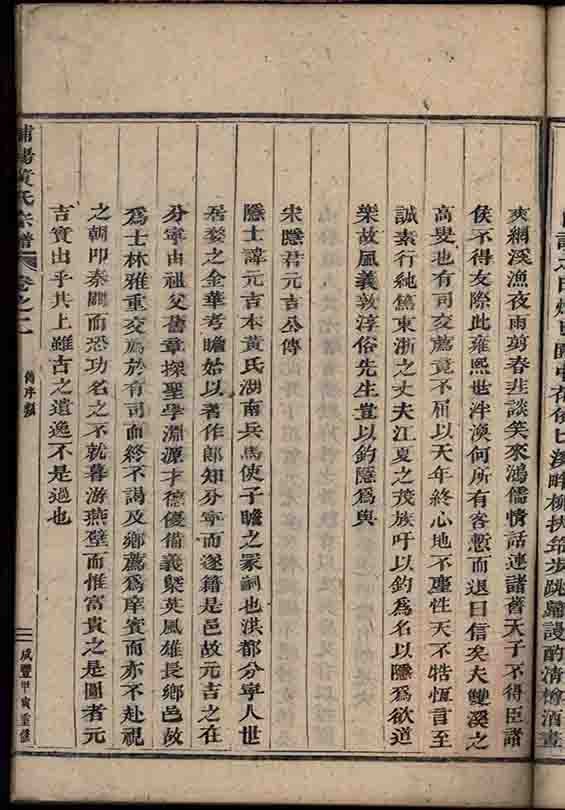 爽網溪漁夜雨剪春韭談笑來鴻儒情話連諸舊天子不得臣諸
侯不得友際此雍熙世泮渙何所有客慙而退曰信矣夫雙溪之
高叟也有司交薦竟不屑以天年終心地不塵性天不牿恆言至
誠素行純篤東浙之丈夫江夏之茂族吁以釣爲名以隱爲欲道
樂故風義敦淳俗先生豈以釣隱爲與
宋隱君元吉公傳
隱士諱元吉本黃氏湖南兵馬使子瞻之冢嗣也洪都分寧人世
居婺之金華考瞻始以著作郎知分寧而遂籍是邑故元吉之在
分寧由祖父舊章探聖學淵源才德優備義槩英風雄長鄉邑故
爲士林雅重交爲於有司而終不謁及鄉薦爲庠賓而亦不赴視
之朝叩秦關而恐功名之不就暮游燕壁而惟富貴之是圖者元
吉實由乎共上雖古之遺逸不是過也
浦陽黃氏宗譜 卷之二 傳序類 咸豐甲寅重修